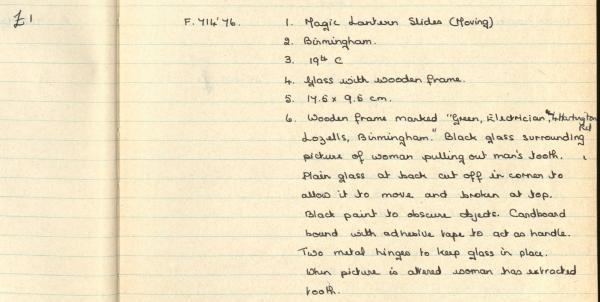 £1
F. 714'76.
1. Magic Lantern Slides (Moving)
2. Birmingham.
3. 19th C
4. Glass with wooden frame.
5. 17.6 x 9.6 cm.
6. Wooden frame marked "Green, Electrician, Hartington Rd
Lozells, Birmingham." Black glass surrounding
picture of woman pulling out man's tooth.
Plain glass at back cut off in corner to
allow it to move and broken at top.
Black paint to obscure objects. Cardboard
bound with adhesive tape to act as handle.
Two metal hinges to keep glass in place.
When picture is altered woman has extracted
tooth.